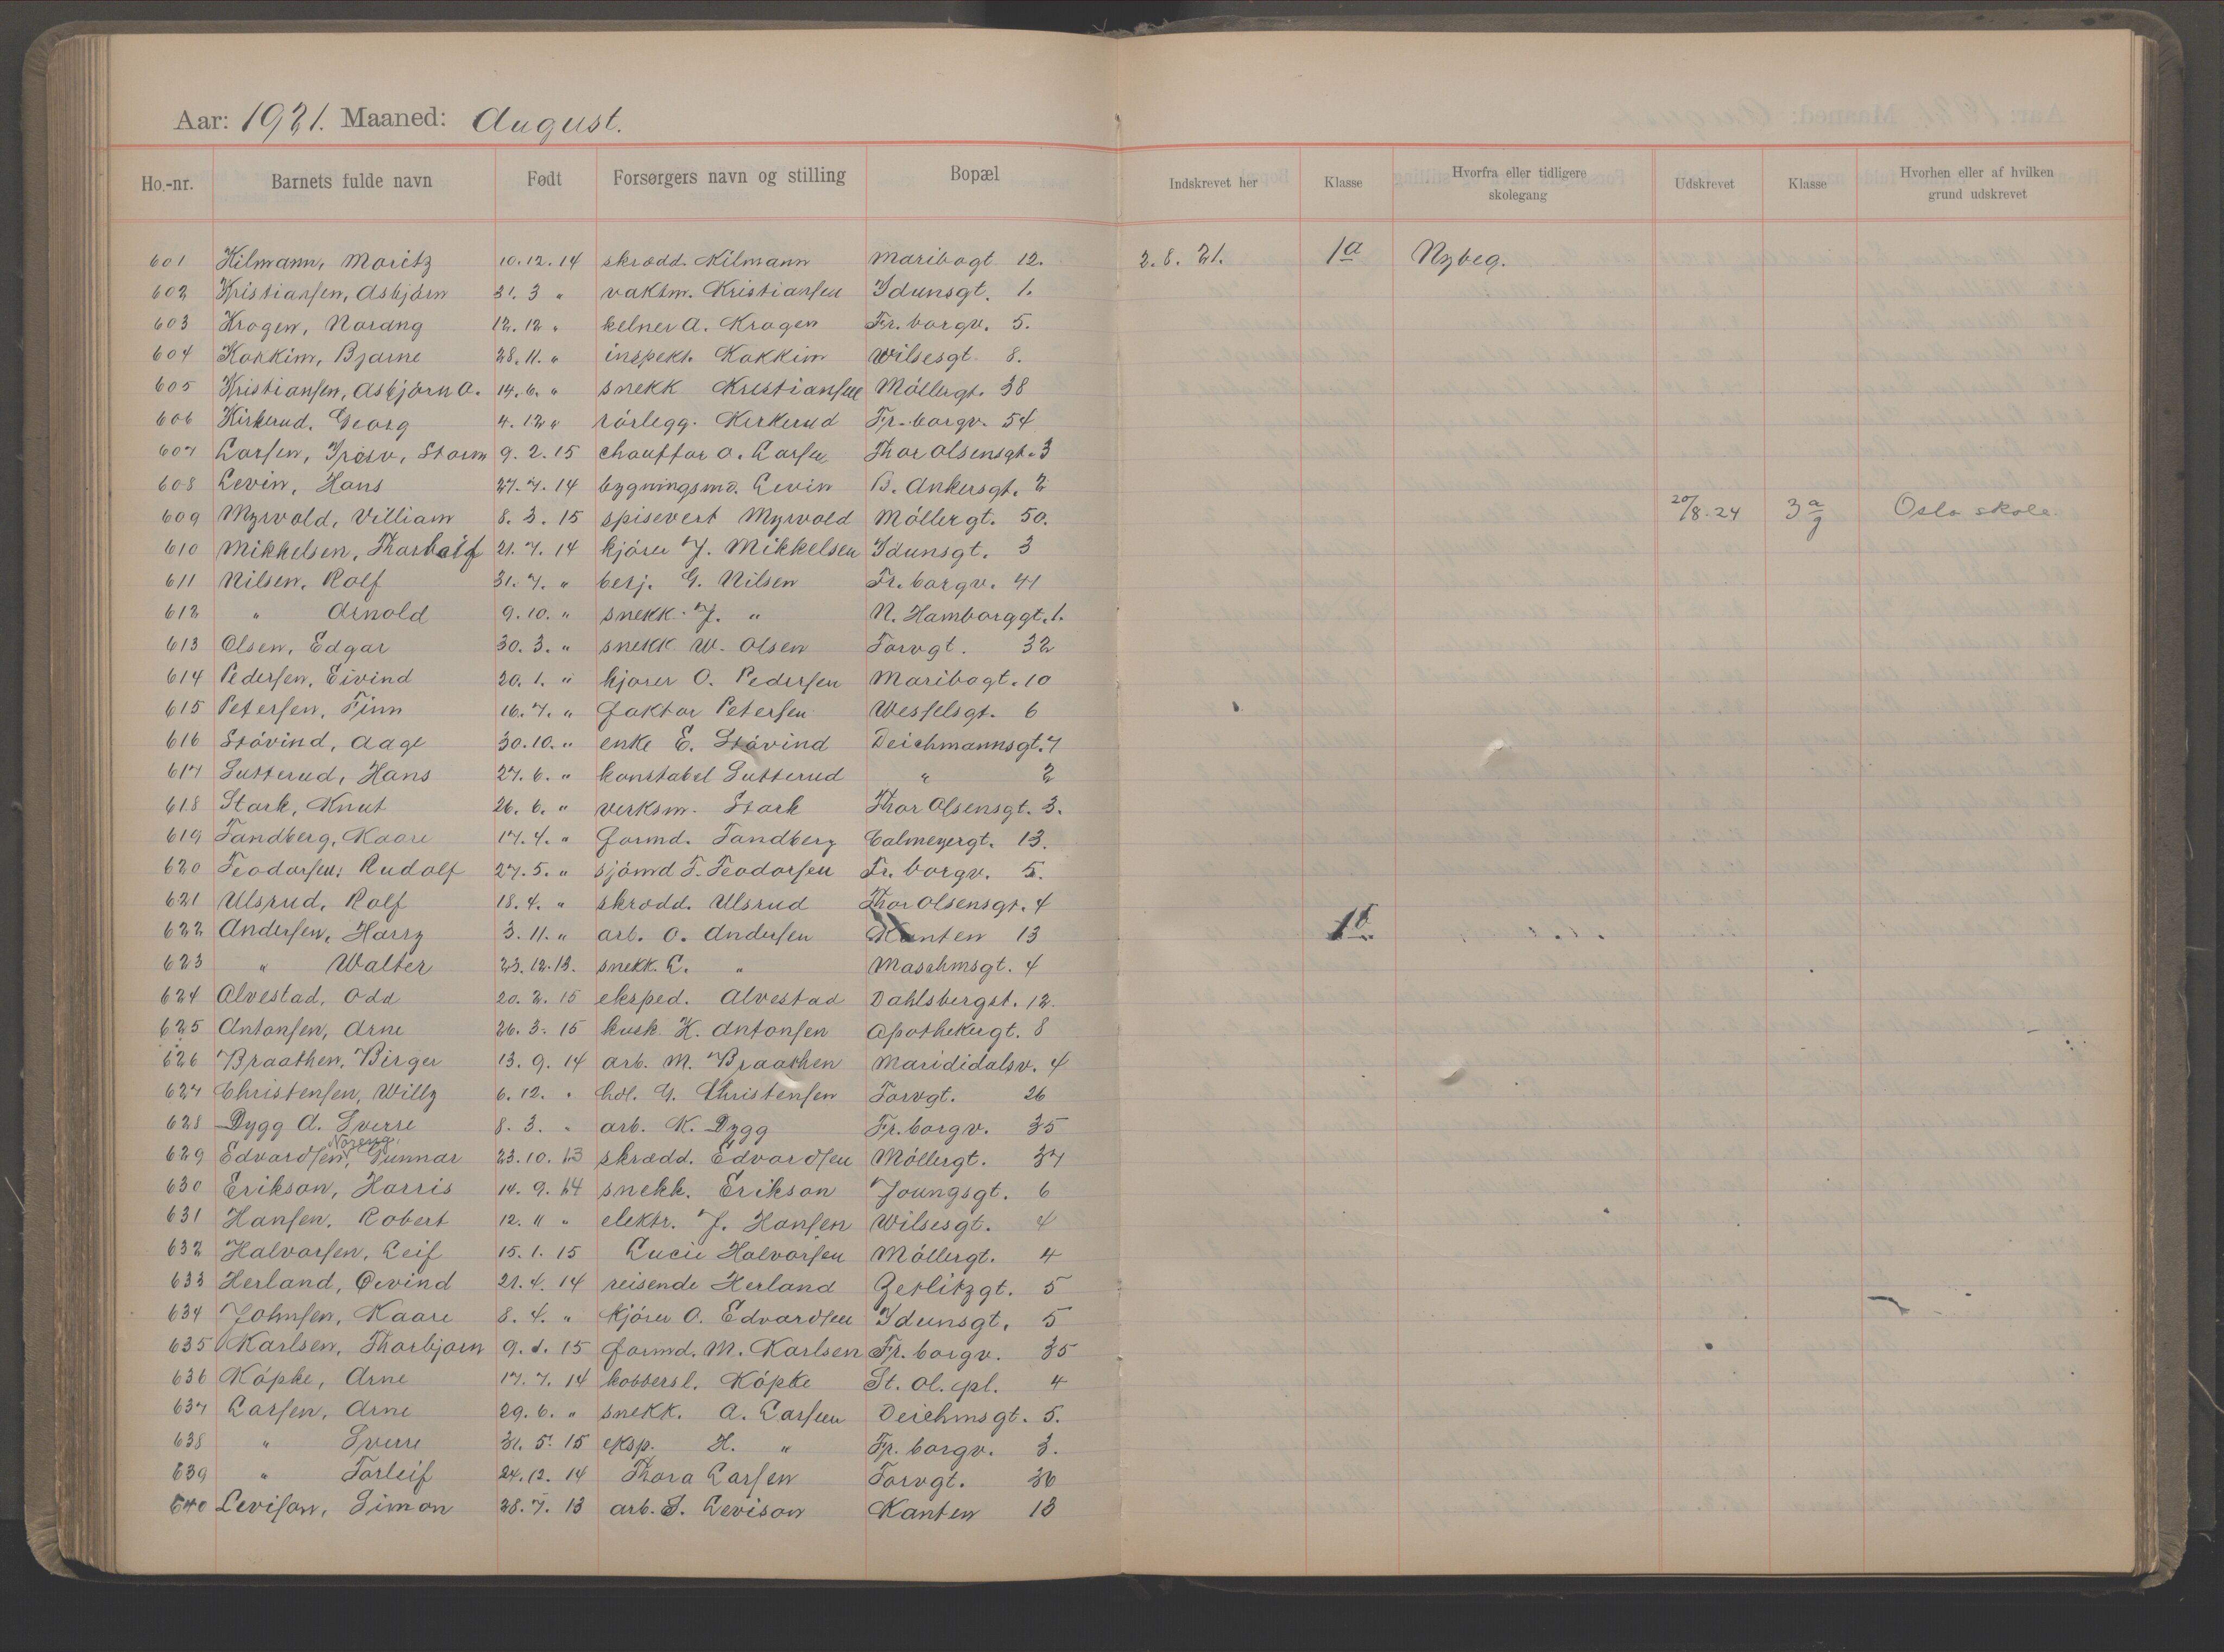 Aar: 1921. Maaned: August.
Ho.-nr. Barnets fulde navn Født Forsørgers navn og stilling Bopæl Indskrevet her Klasse Hvorfra eller tidligere skolegang Udskrevet Klasse Hvorhen eller af hvilken grund udskrevet
601 Kilmann, Moritz 10.12.14 skrædd. Kilmann Maribogt 12. 2.8.21. 1a Nybeg.
602 Kristiansen, Asbjörn 31.3 " vaktm. Kristiansen Idunsgt. 1.
603 Krogen, Nordng 12.12 " kelner A. Krogen Fr. borgv. 5.
604 Kokkim, Bjarne 28.11. " inspekt. Kokkim Wilsesgt. 8.
605 Kristiansen, Asbjörn O. 14.6. " snekk Kristiansen Möllergt. 38
606 Kirkerud, Georg 4.12 " rörlegg. Kirkerud Fr. borgv. 54
607 Larsen, Storm 9.2.15 chauffør O. Larsen Thor Olsensgt. 3
608 Levin, Hans 27.7.14 bygningsmd. Levin B. Ankersgt. 2
609 Myrvold, Villiam 8.3.15 spisevert Myrvold Möllergt. 50. 20/8.24 3 a/g Oslo skole.
610 Mikkelsen, Thorleif 21.7.14 kjörer J. Mikkelsen Idunsgt. 3
611 Nilsen, Rolf 31.7. " betj. G. Nilsen Fr. borgv. 41
612 " Arnold 9.10. " snekk. J. " N. Hamborggt. 1.
613 Olsen, Edgar 30.3. " snekk W. Olsen Torvgt. 32
614 Pedersen, Eivind 20.1. " kjører O. Pedersen Maribogt. 10
615 Petersen, Finn 16.7. " faktor Petersen Wesselsgt. 6
616 Stövind, Aage 30.10. " enke E. Stövind Deichmannsgt. 7
617 Sutterud, Hans 27.6. " konstabel Sutterud " 2
618 Stark, Knut 26.6. " verksm. Stark Thor Olsensgt. 3.
619 Tandberg, Kaare 17.4. " formd. Tandberg Calmeyergt. 13.
620 Teodorsen, Rudolf 27.5. " sjömd T. Teodorsen Fr. borgv. 5.
621 Ulsrud, Rolf 18.4. " skrædd. Ulsrud Thor Olsensgt. 4
622 Andersen, Harry 3.11. " arb. O. Andersen Kanten 13 1b
623 " Walter 23.12.13. snekk. L. " Maschmsgt. 4
624 Alvestad, Odd 20.2.15 eksped. Alvestad Dahlsbergst. 12.
625 Antonsen, Arne 26.3.15 kusk K. Antonsen Apothekergt. 8
626 Braathen, Birger 13.9.14 arb. M. Braathen Marididalsv. 4
627 Christensen, Willy 6.12. " hdl. G. Christensen Torvgt. 26
628 Dygg A. Sverre 8.3. " arb. K. Dygg Fr. borgv. 35
Noreng,
629 Edvardsen, Gunnar 23.10.13 skrædd. Edvardsen Möllergt. 37
630 Erikson, Harris 14.9.14 snekk. Erikson Youngsgt. 6
631 Hansen, Robert 12. " " elektr. J. Hansen Wilsesgt. 4
632 Halvorsen, Leif 15.1.15 Lucie Halvorsen Möllergt. 4
633 Herland, Øivind 21.4.14 reisende Herland Zetlitzgt. 5
634 Johnsen, Kaare 8.4. " Kjörer O. Edvardsen Idunsgt. 5
635 Karlsen, Thorbjørn 9.1.15 formd. M. Karlsen Fr. borgv. 35
636 Köpke, Arne 17.7.14 kobbersl. Köpke St. Ol. pl. 4
637 Larsen, Arne 29.6. " snekk. A. Larsen Deichmsgt. 5.
638 " Sverre 31.5.15 eksp. H. " Fr. borgv. 3.
639 " Torleif 24.12.14 Thora Larsen Torvgt. 36
640 Levison, Simon 28.7.13 arb. S. Levison Kanten 13